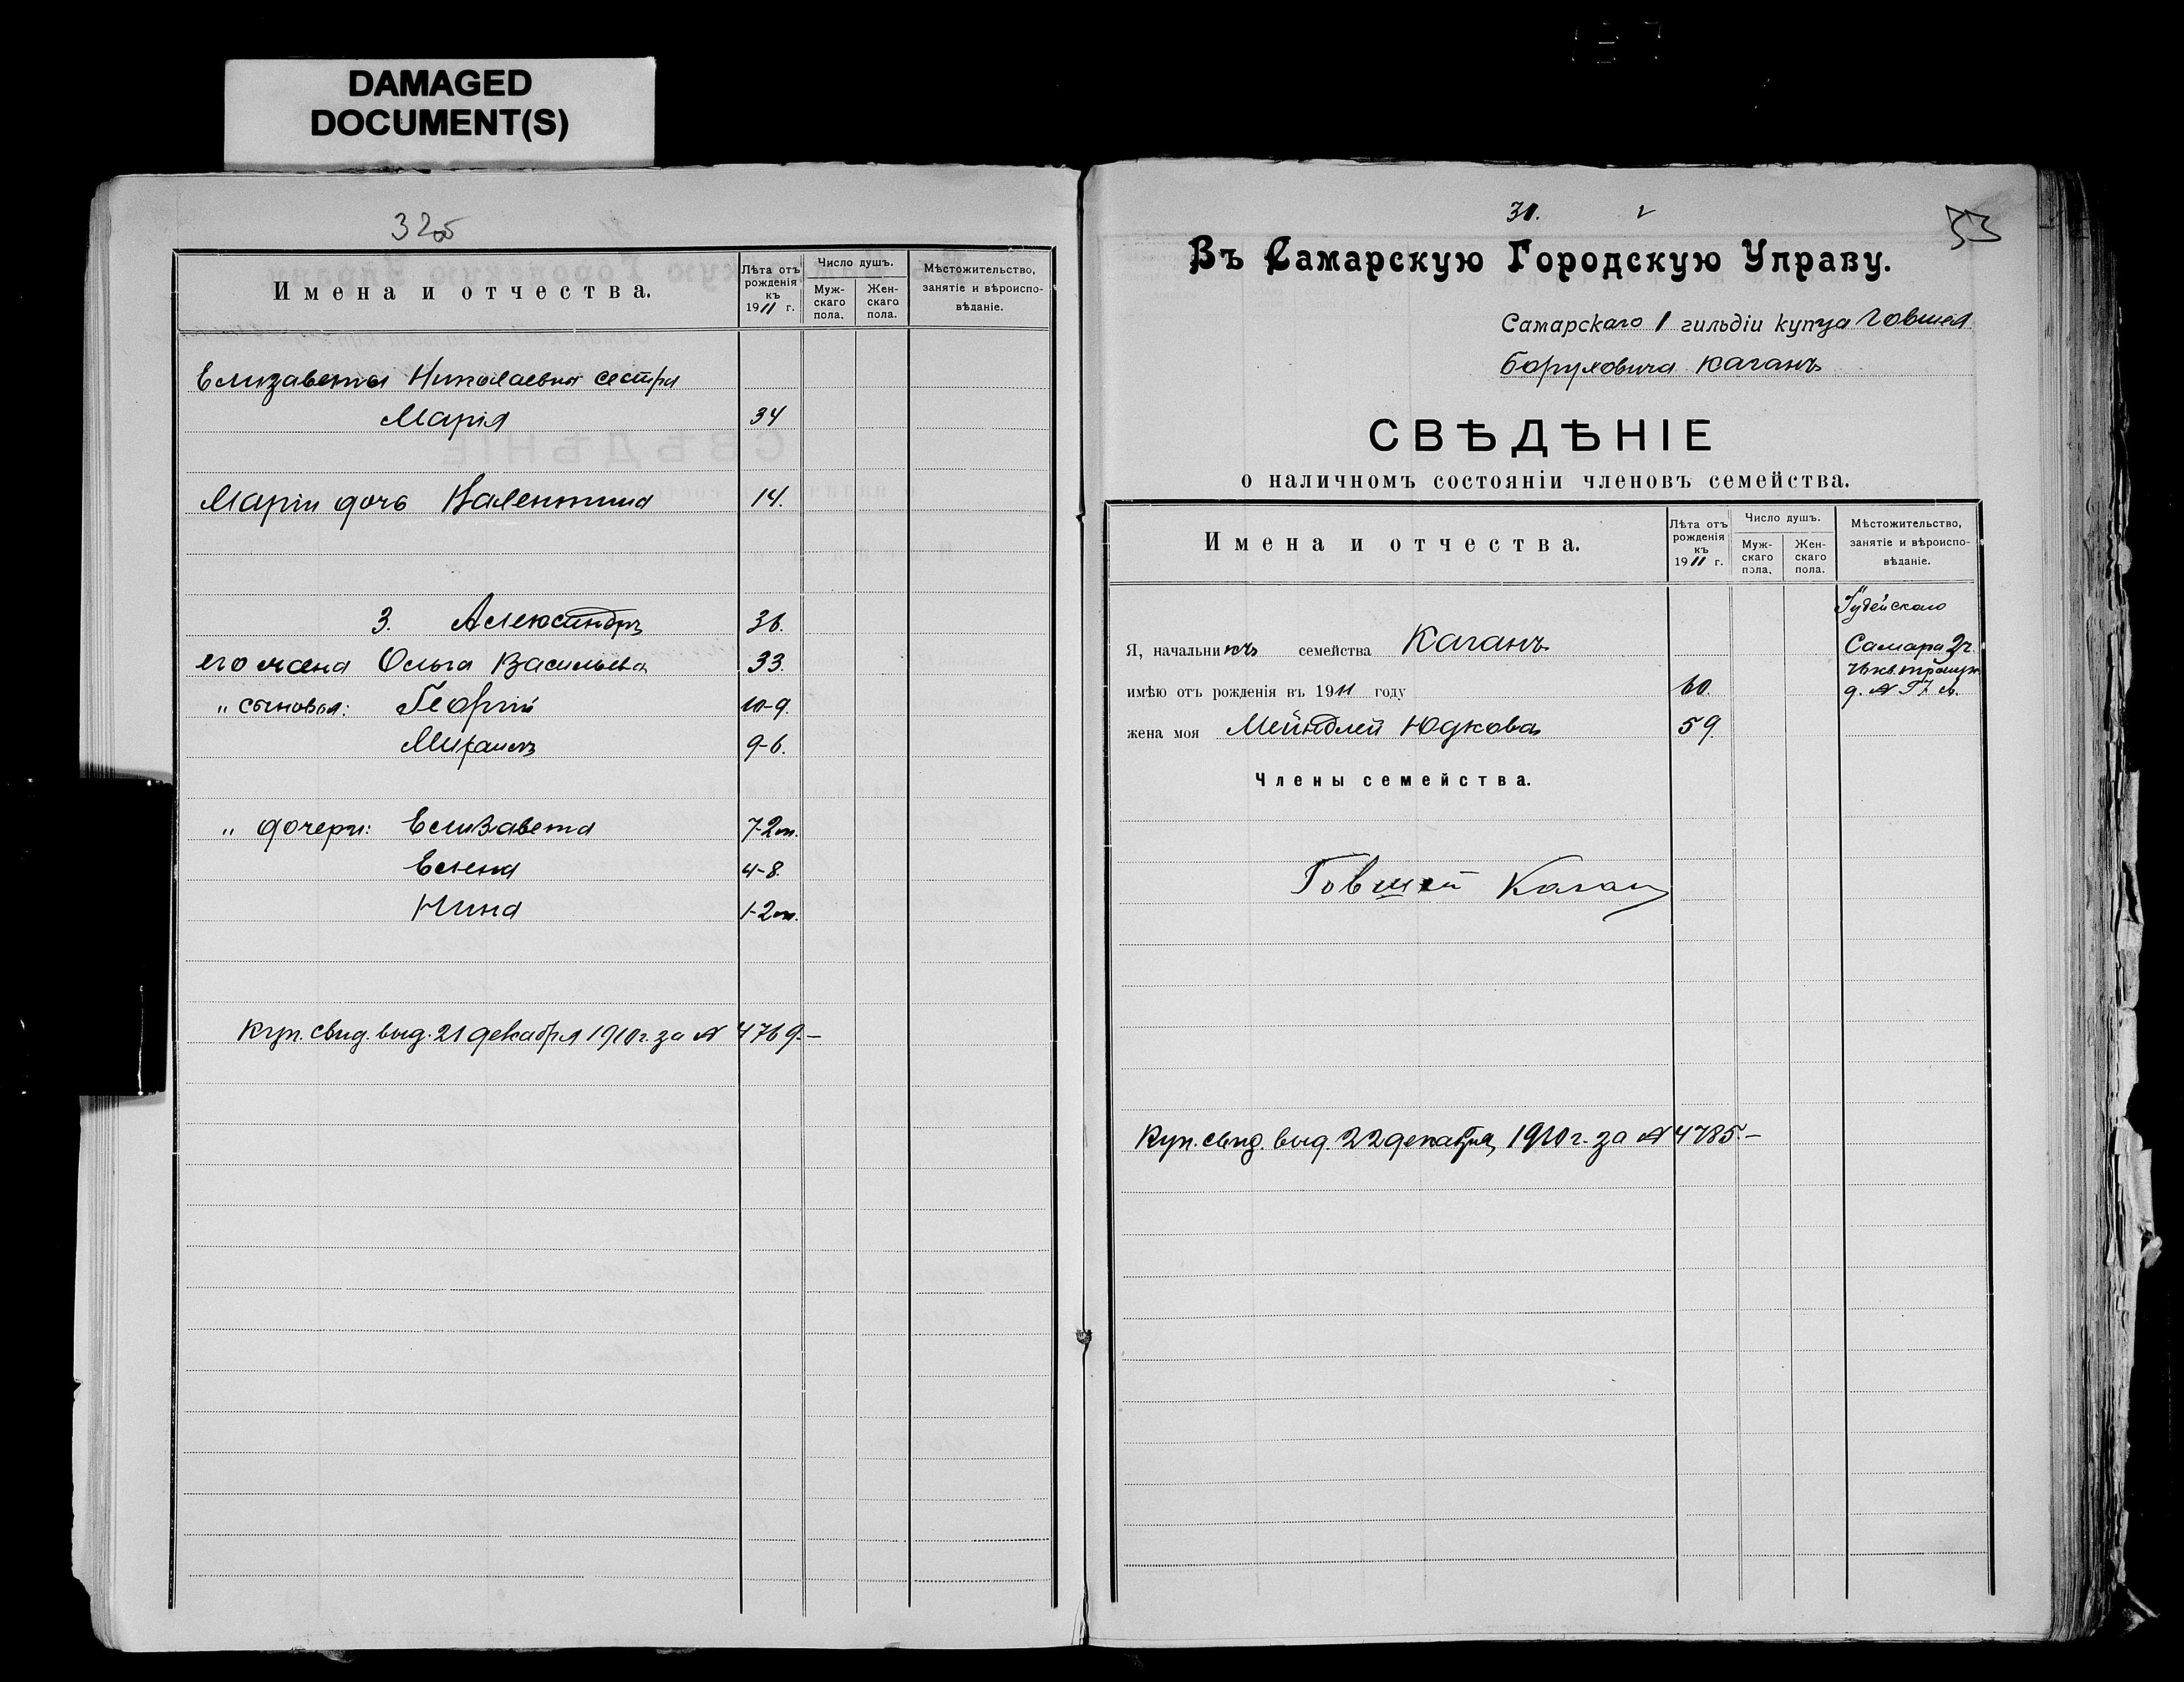 DAMAGED
DOCUMENT(S)
32об
Имена и отчества.
Лѣта отъ рожденія къ 1911 г.
Число душъ.
Мужскаго пола.
Женскаго пола.
Мѣстожительство, занятіе и вѣроисповѣданіе.
Елизаветы Николаевны сестра
Марія 34
Маріи дочь Валентина 14.
3. Александръ 36.
его жена Ольга Васильева 33.
" сыновья: Георгій 10-9.
Михаилъ 9-6.
" дочери: Елизавета 7-2 м.
Елена 4-8.
Нина 1-2 м.
Куп. свид. выд. 21 декабря 1910 г. за № 4769.-
31.
33
Въ Самарскую Городскую Управу.
Самарскаго 1 гильдіи купца Говшея
Боруховича Каганъ
СВѢДѢНІЕ
о наличномъ состояніи членовъ семейства.
Имена и отчества.
Лѣта отъ рожденія къ 1911 г.
Число душъ.
Мужскаго пола.
Женскаго пола.
Мѣстожительство, занятіе и вѣроисповѣданіе.
Іудейскаго
Я, начальникъ семейства Каганъ
Самара 2 ч.
имѣю отъ рожденія въ 1911 году 60.
жена моя Мейндлей Юдкова 59.
Члены семейства.
Говшей Каган
Куп. свид. выд. 22 декабря 1910 г. за № 4785.-